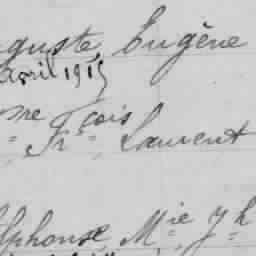 guste, Eugène
avril 1915
me çois
Fr Laurent
lphonse, Mie Jh